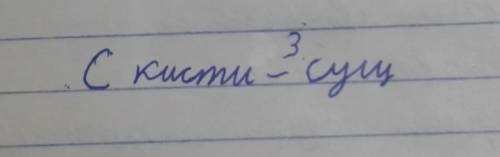 С кисти -³ сущ